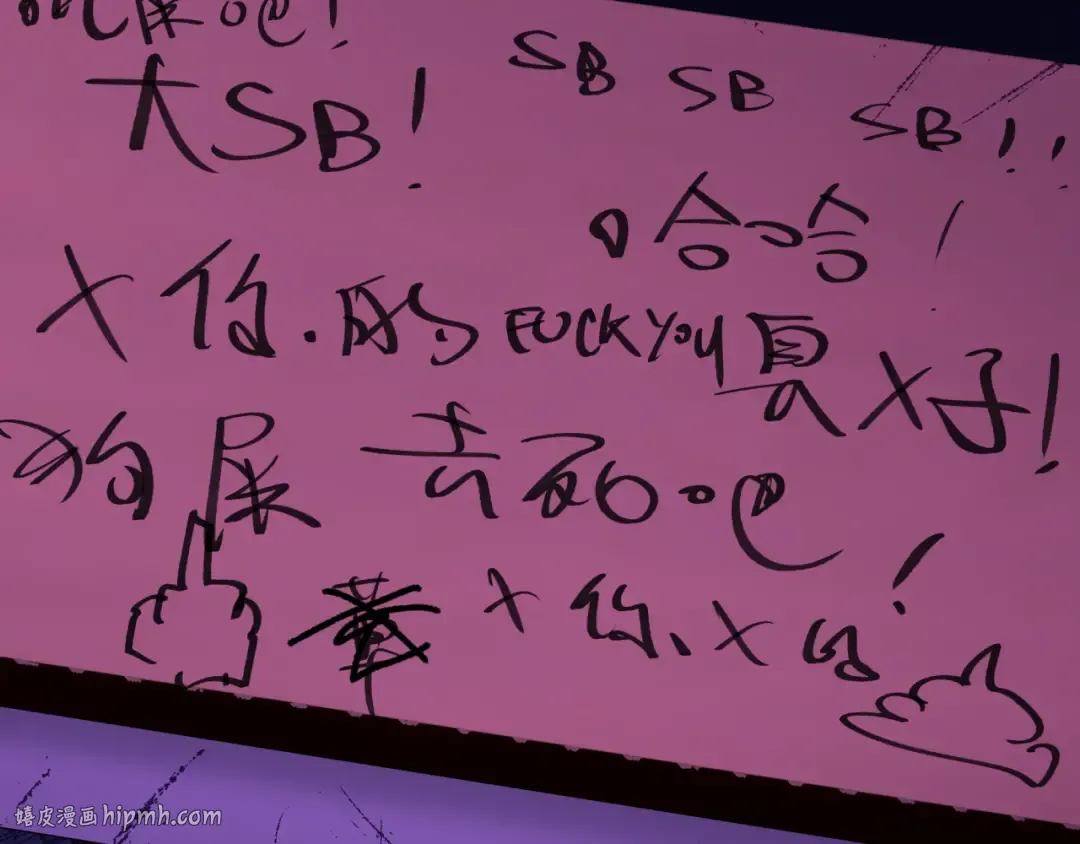 吃屎吧！
SB SB SB！！
大SB！
哈哈！
X你.的 FUCK YOU 真X子！
狗屎 去死吧！
X你、X的
嬉皮漫画 hipmh.com